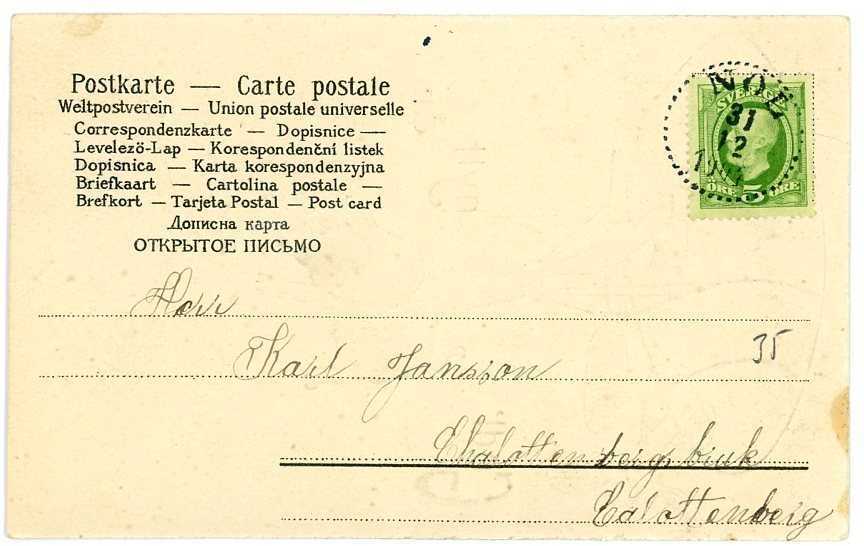 Postkarte — Carte postale
Weltpostverein — Union postale universelle
Correspondenzkarte — Dopisnice —
Levelező-Lap — Korespondenční listek
Dopisnica — Karta korespondenzyjna
Briefkaart — Cartolina postale —
Brefkort — Tarjeta Postal — Post card
Дописна карта
ОТКРЫТОЕ ПИСЬМО
NOL
SVERIGE
31
12
ÖRE 5 ÖRE
Herr
35
Karl Jansson